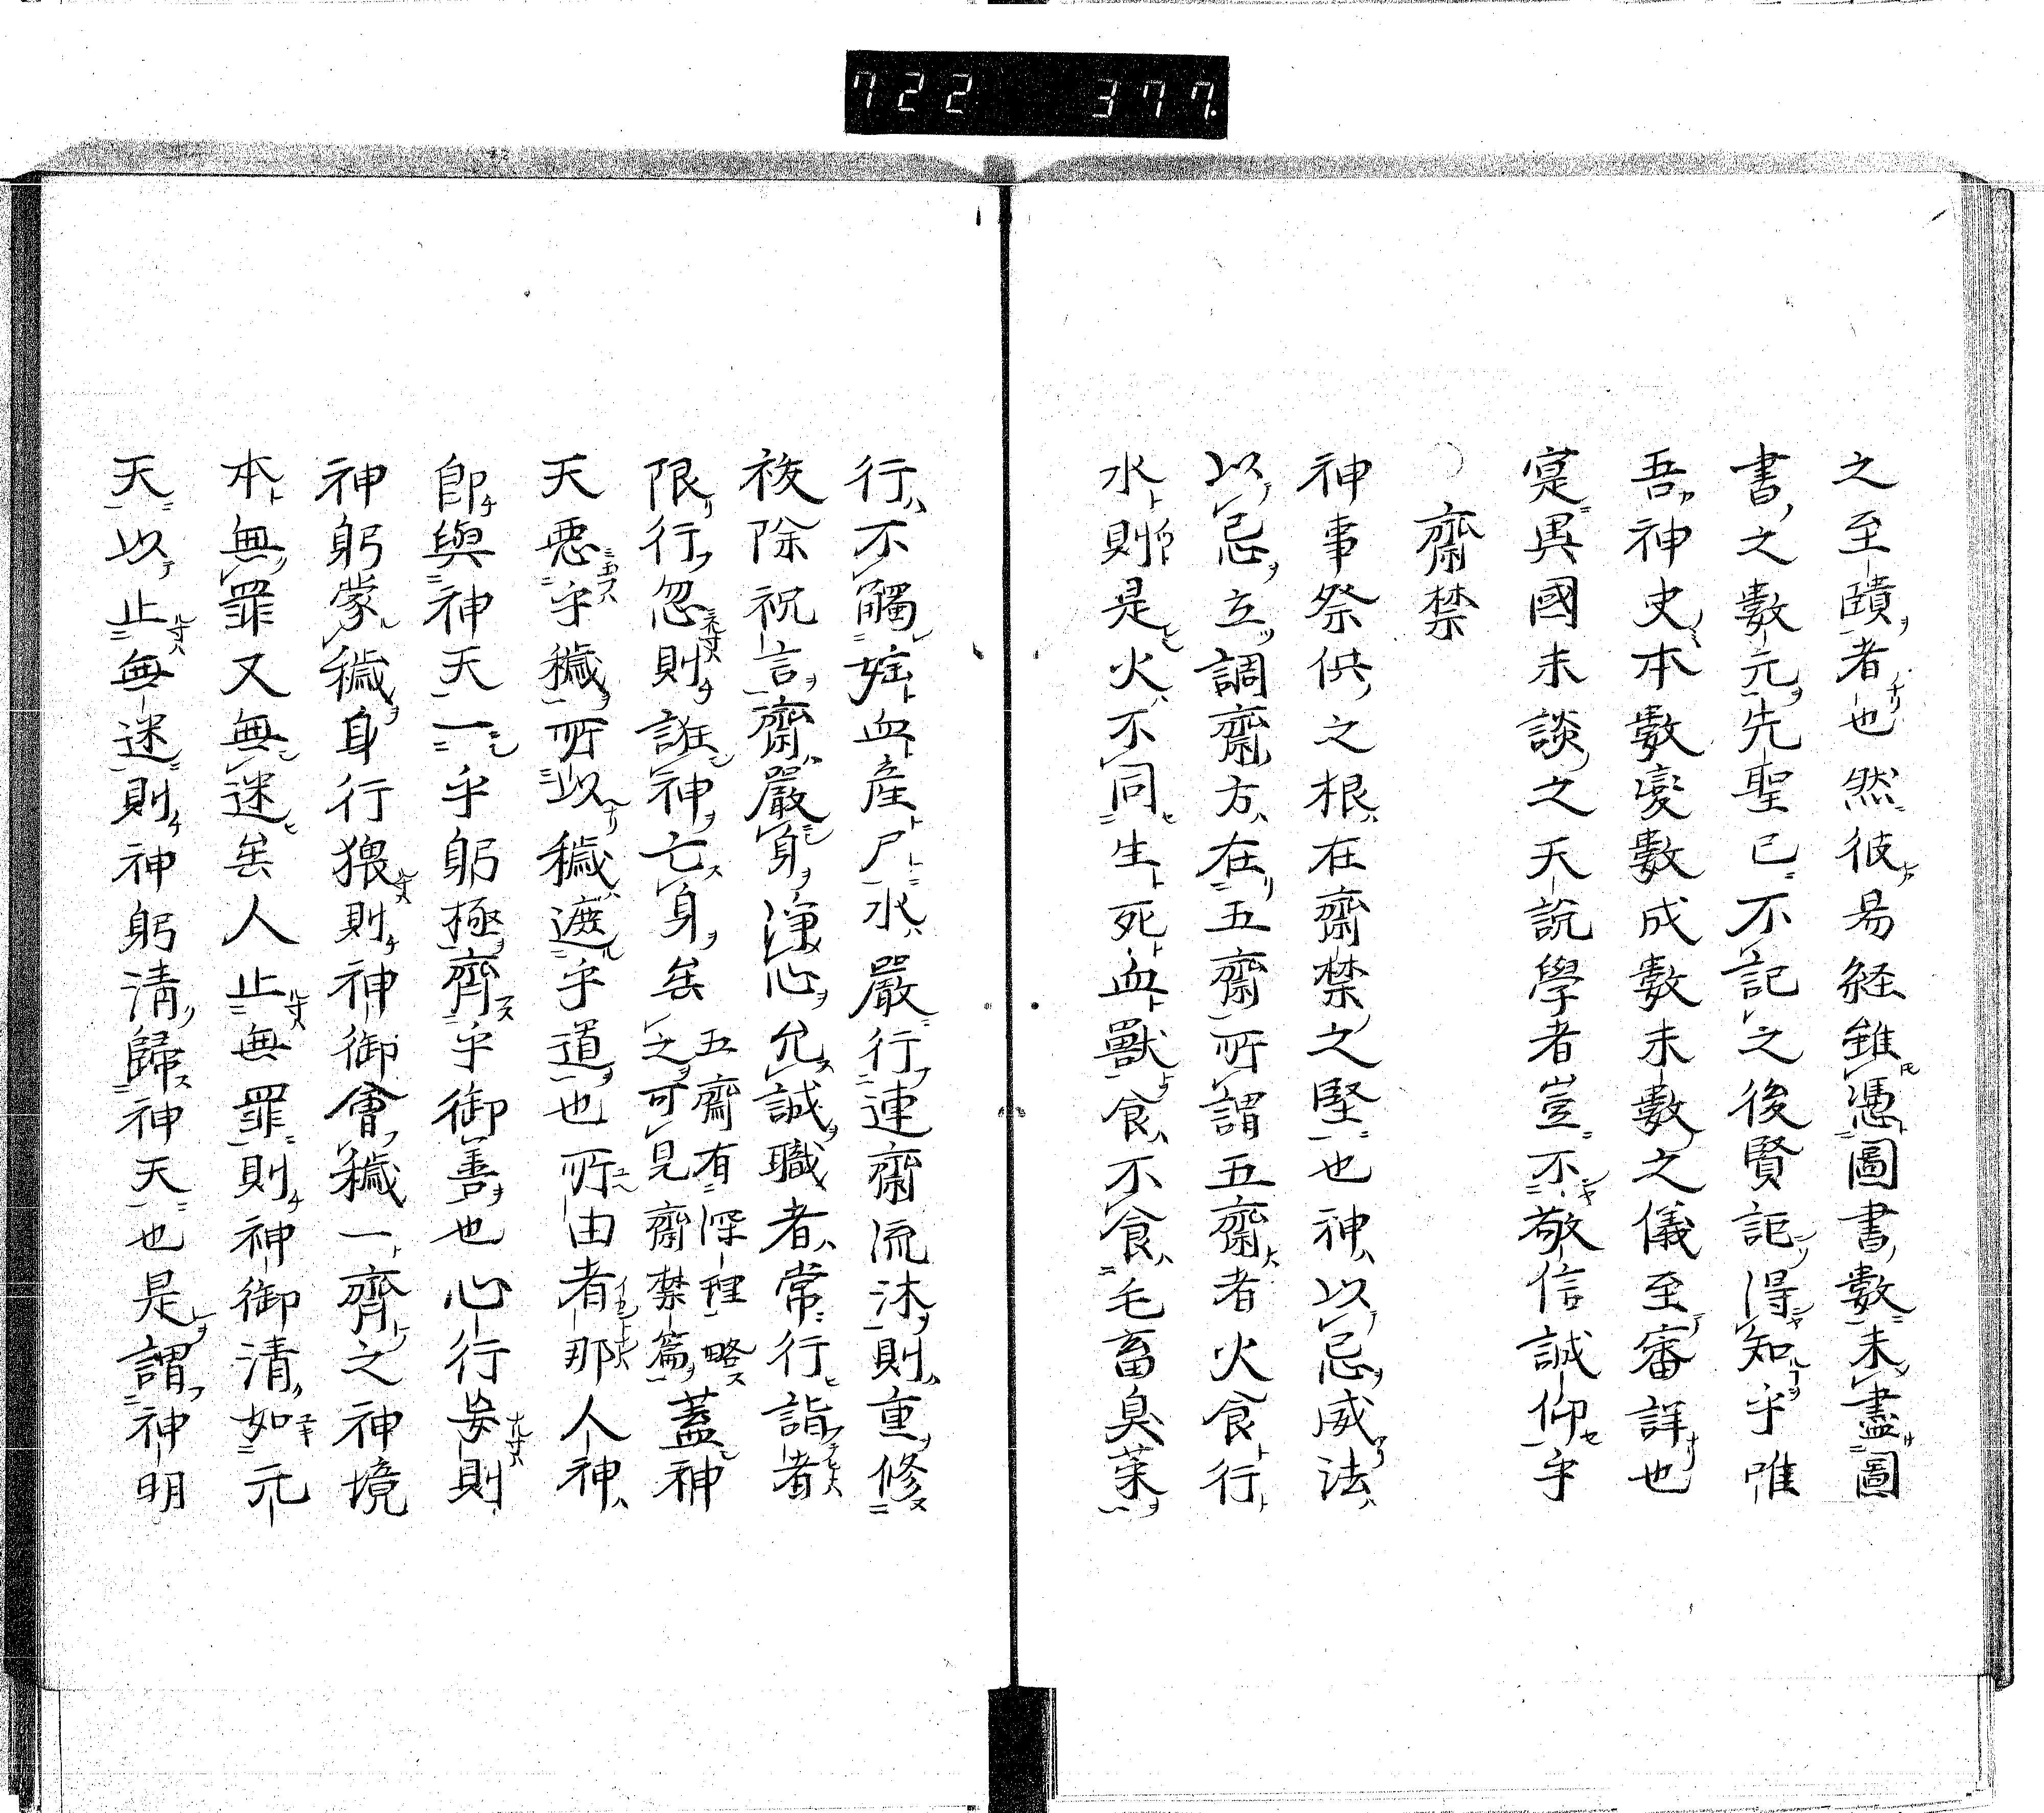 722 377
之至賾者也然彼易経雖憑圖書數未盡圖
書之數元先聖已不記之後賢記得知乎唯
吾神史本數変數成數未數之儀至審詳也
寔異國未談之天説學者豈不敬信誠仰乎
○齋禁
神事祭供之根在齋禁之堅也神以忌威法
以忌立調齋方在五齋所謂五齋者火食行
水則是火不同生死血獣食不食毛畜臭菜
行不觸姙血産尸水嚴行連齋流沐則重修
祓除祝言齋嚴身淨心允誠職者常行詣者
限行忽則誑神亡身矣五齋有深理略之可見齋禁篇蓋神
天悪乎穢所以穢遮乎道也所由者那人神
即與神天一乎躬極齊乎御善也心行安則
神躬蒙穢身行猥則神御會穢一齊之神境
本無罪又無迷矣人止無罪則神御清如元
天以止無迷則神躬清歸神天也是謂神明